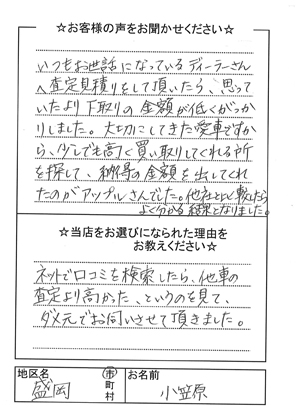 ☆お客様の声をお聞かせください☆
いつもお世話になっているディーラーさん
へ査定見積りをして頂いたら、思って
いたより下取りの金額が低くがっか
りしました。大切にしてきた愛車ですか
ら、少しでも高く買い取りしてくれる所
を探して、納得の金額を出してくれ
たのがアップルさんでした。他社と比較したら
よく分かる結果となりました。
☆当店をお選びになられた理由を
お教えください☆
ネットで口コミを検索したら、他車の
査定より高かった、というのを見て、
ダメ元でお伺いさせて頂きました。
地区名 盛岡 市町村 お名前 小笠原